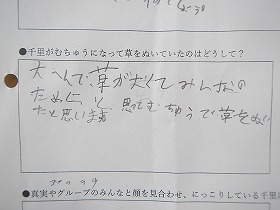 ●千里がむちゅうになって草をぬいていたのはどうして?
大へんで、草が大くてみんなの
ために、と、思ってむちゅうで草をぬい
たと思います
●真実やグループのみんなと顔を見合わせ、にっこりしている千里